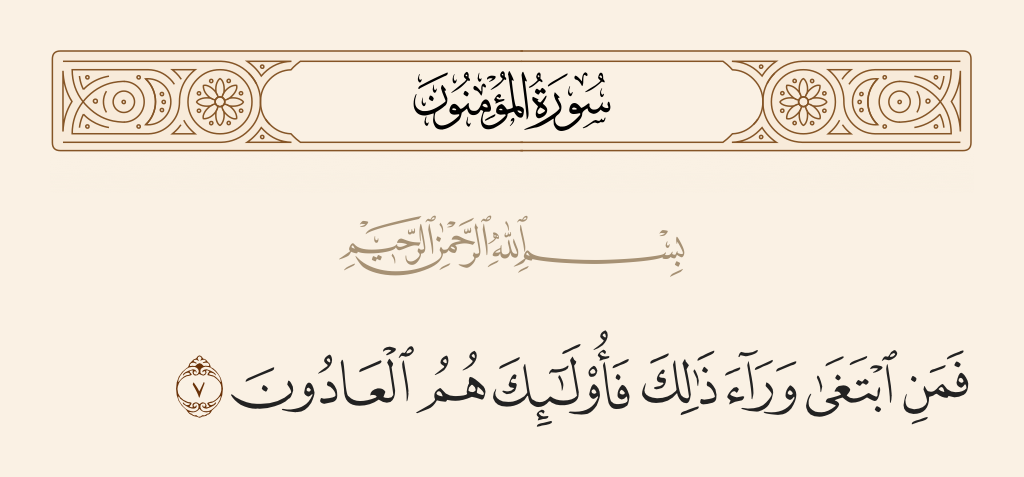 سُورَةُ المُؤْمِنُونَ
بِسْمِ ٱللَّهِ ٱلرَّحْمَٰنِ ٱلرَّحِيمِ
فَمَنِ ٱبْتَغَىٰ وَرَآءَ ذَٰلِكَ فَأُو۟لَـٰٓئِكَ هُمُ ٱلْعَادُونَ ٧